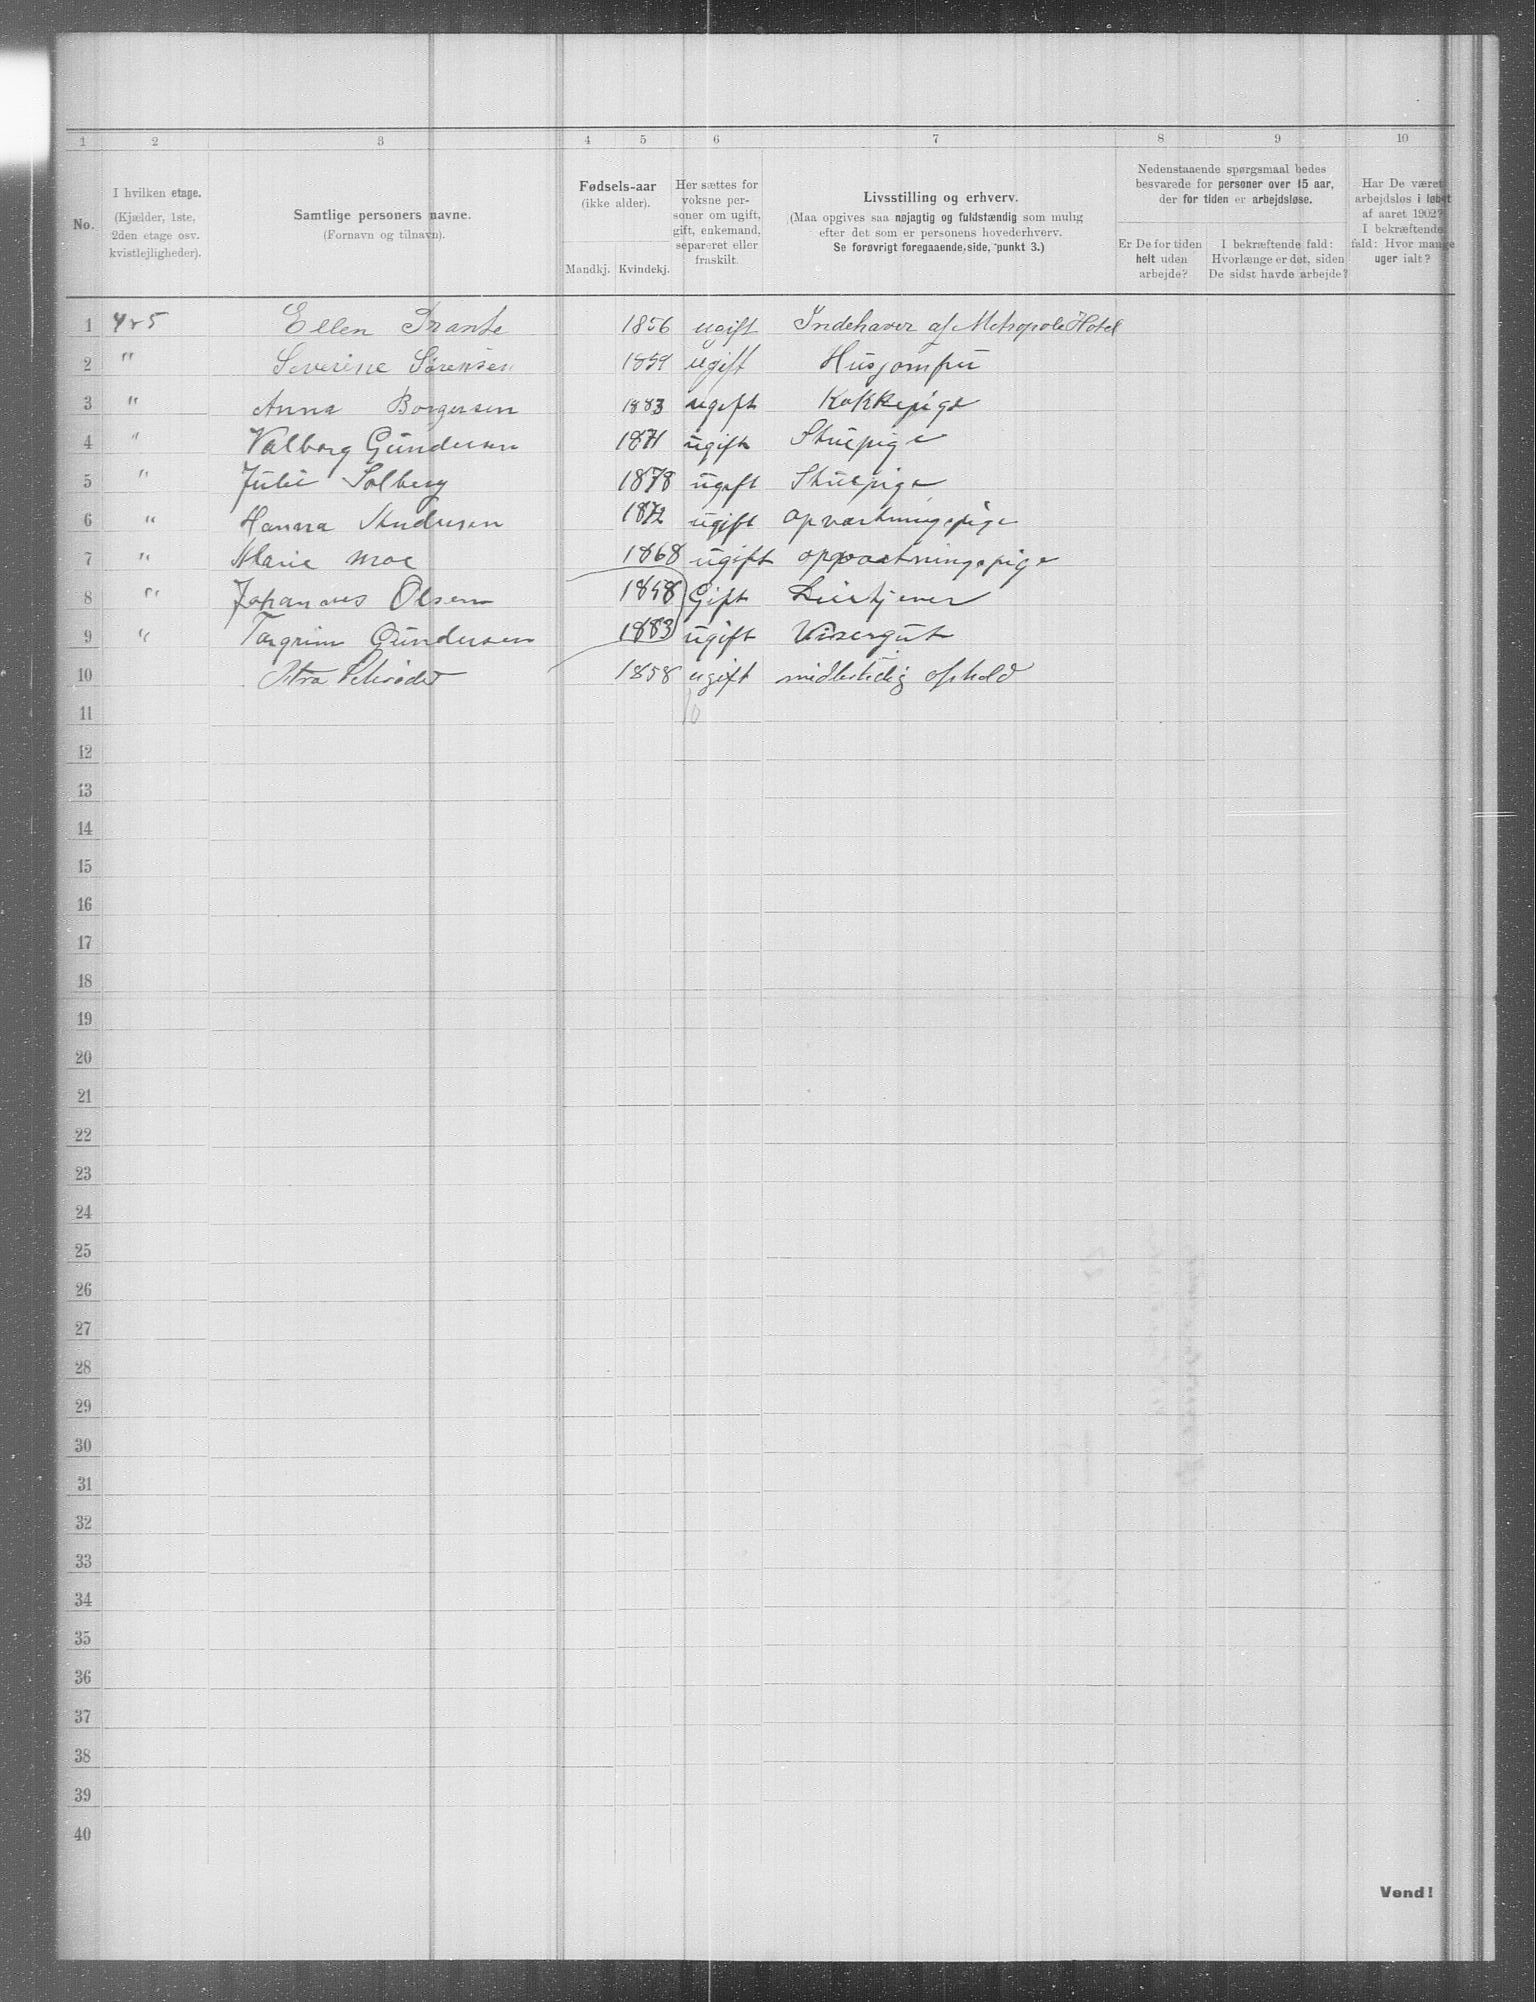 1 2 3 4 5 6 7 8 9 10
No.
I hvilken etage.
(Kjælder, 1ste,
2den etage osv.
kvistlejligheder).
Samtlige personers navne.
(Fornavn og tilnavn).
Fødsels-aar
(ikke alder).
Mandkj. Kvindekj.
Her sættes for
voksne per-
soner om ugift,
gift, enkemand,
separeret eller
fraskilt.
Livsstilling og erhverv.
(Maa opgives saa nøjagtig og fuldstændig som mulig
efter det som er personens hovederhverv.
Se forøvrigt foregaaende side, punkt 3.)
Nedenstaaende spørgsmaal bedes
besvarede for personer over 15 aar,
der for tiden er arbejdsløse.
Er De for tiden
helt uden
arbejde?
I bekræftende fald:
Hvorlænge er det, siden
De sidst havde arbejde?
Har De været
arbejdsløs i løbet
af aaret 1902?
I bekræftende
fald: Hvor mange
uger ialt?
1 4 & 5 Ellen 1856 ugift Indehaver af Metropole Hotel
2 " Severine Sørensen 1859 ugift Husjomfru
3 " Anna Borgersen 1883 ugift Kokkepige
4 " Valborg Gundersen 1871 ugift Stuepige
5 " Julie Solberg 1878 ugift Stuepige
6 " Hanna 1872 ugift opvartningspige
7 " Marie Moe 1868 ugift oppvartningspige
8 " Johannes Olsen 1858 Gift
9 " Torgrim Gundersen 1883 ugift Visergut
10 Schrøder 1858 ugift midlertidig ophold
11 10
12
13
14
15
16
17
18
19
20
21
22
23
24
25
26
27
28
29
30
31
32
33
34
35
36
37
38
39
40
Vend!